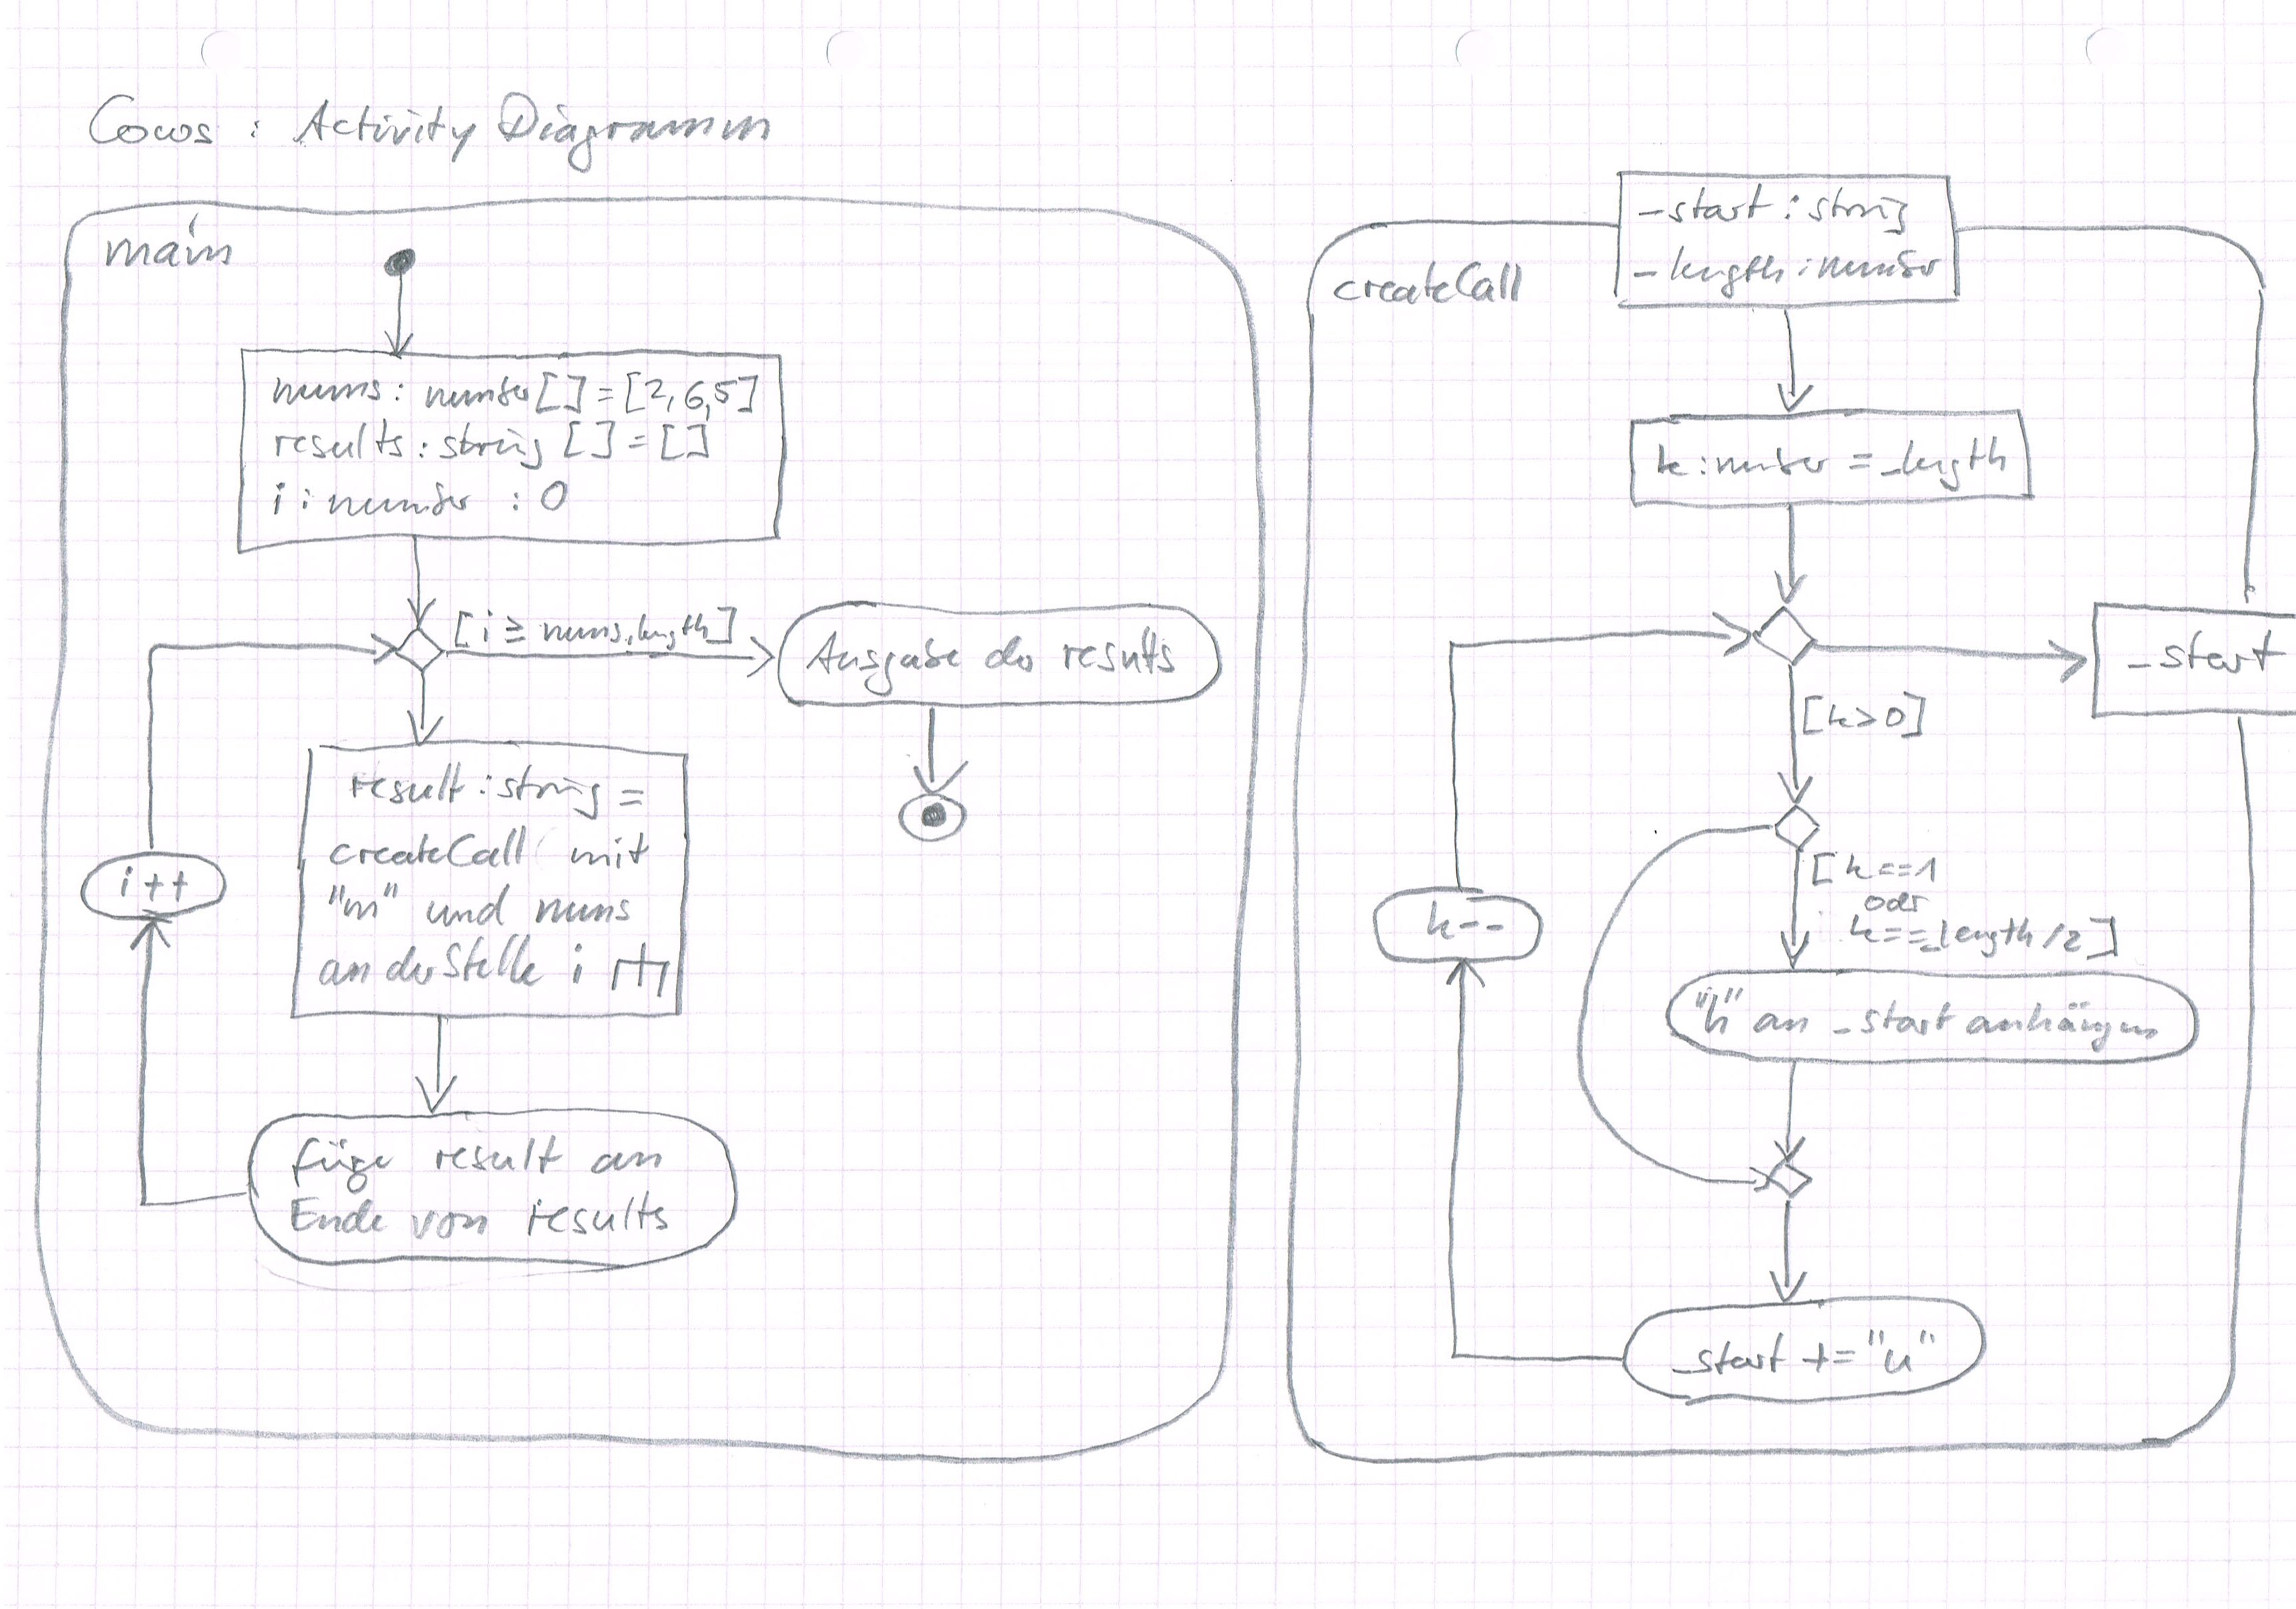 Cows : Activity Diagramm
main
nums : number [ ] = [2, 6, 5]
results : string [ ] = [ ]
i : number : 0
[i ≥ nums.length]
Ausgabe der resutls
result : string =
createCall mit
"m" und nums
an der Stelle i
füge result an
Ende von results
i++
_start : string
_length : number
createCall
k : number = _length
_start
[k > 0]
[k == 1
oder
k == _length / 2]
"h" an _start anhängen
k--
_start += "u"